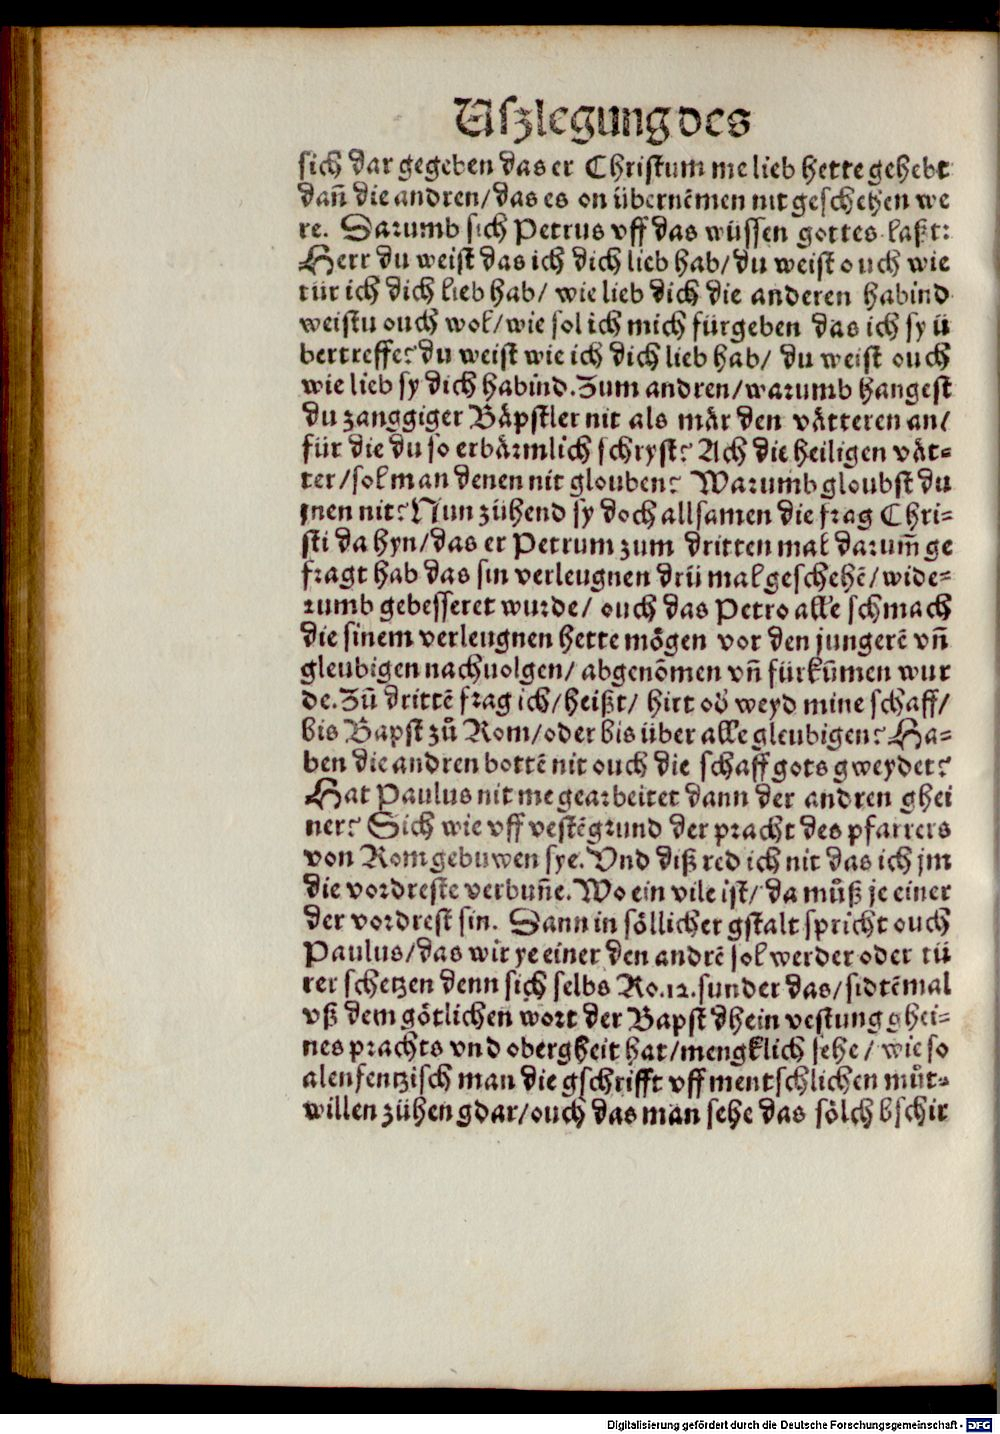 Uſzlegung des
sich dar gegeben das er Christum me lieb hette gehebt
dañ die andren/das es on übernēmen nit geschehen we
re. Darumb sich Petrus vff das wüssen gottes laßt:
Herr du weist das ich dich lieb hab/du weist ouch wie
tür ich dich lieb hab/ wie lieb dich die anderen habind
weistu ouch wol/wie sol ich mich fürgeben das ich sy ü
bertreffe? du weist wie ich dich lieb hab/ du weist ouch
wie lieb sy dich habind. Zum andren/warumb hangest
du zanggiger Bäpstler nit als mär den vätteren an/
für die du so erbärmlich schryst? Ach die heiligen vät-
ter/sol man denen nit glouben? Warumb gloubst du
jnen nit? Nun zühend sy doch allsamen die frag Chri-
sti da hyn/das er Petrum zum dritten mal darum̄ ge
fragt hab das sin verleugnen drü mal geschehē/wide-
rumb gebesseret wurde/ ouch das Petro alle schmach
die sinem verleugnen hette mögen vor den jungerē vñ
gleubigen nachuolgen/ abgenōmen vñ fürkūmen wur
de. Zū drittē frag ich/heißt/ hirt oď weyd mine schaff/
bis Bapst zů Rom/oder bis über alle gleubigen? Ha-
ben die andren bottē nit ouch die schaff gots gweydet?
Hat Paulus nit me gearbeitet dann der andren ghei
ner? Sich wie vff vestē grund der pracht des pfarrers
von Rom gebuwen sye. Vnd diß red ich nit das ich jm
die vordreste verbuñe. Wo ein vile ist/ da můß je einer
der vordrest sin. Dann in söllicher gstalt spricht ouch
Paulus/das wir ye einer den andrē sol werder oder tü
rer schetzen denn sich selbs Ro.12.sunder das/sidtēmal
vß dem götlichen wort der Bapst dhein vestung ghei-
nes prachts vnd obergheit hat/mengklich sehe/ wie so
alenfentzisch man die gschrifft vff mentschlichen můt-
willen zühen gdar/ouch das man sehe das sölch bschir
Digitalisierung gefördert durch die Deutsche Forschungsgemeinschaft - DFG